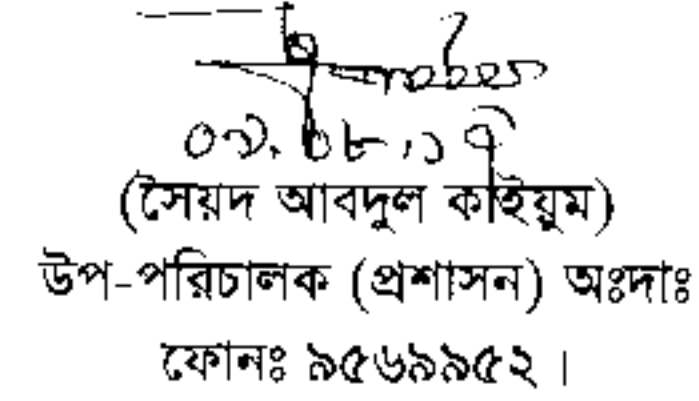 ০৯.০৮.১৭
(সৈয়দ আবদুল কাইয়ুম)
উপ-পরিচালক (প্রশাসন) অঃদাঃ
ফোনঃ ৯৫৬৯৯৫২।